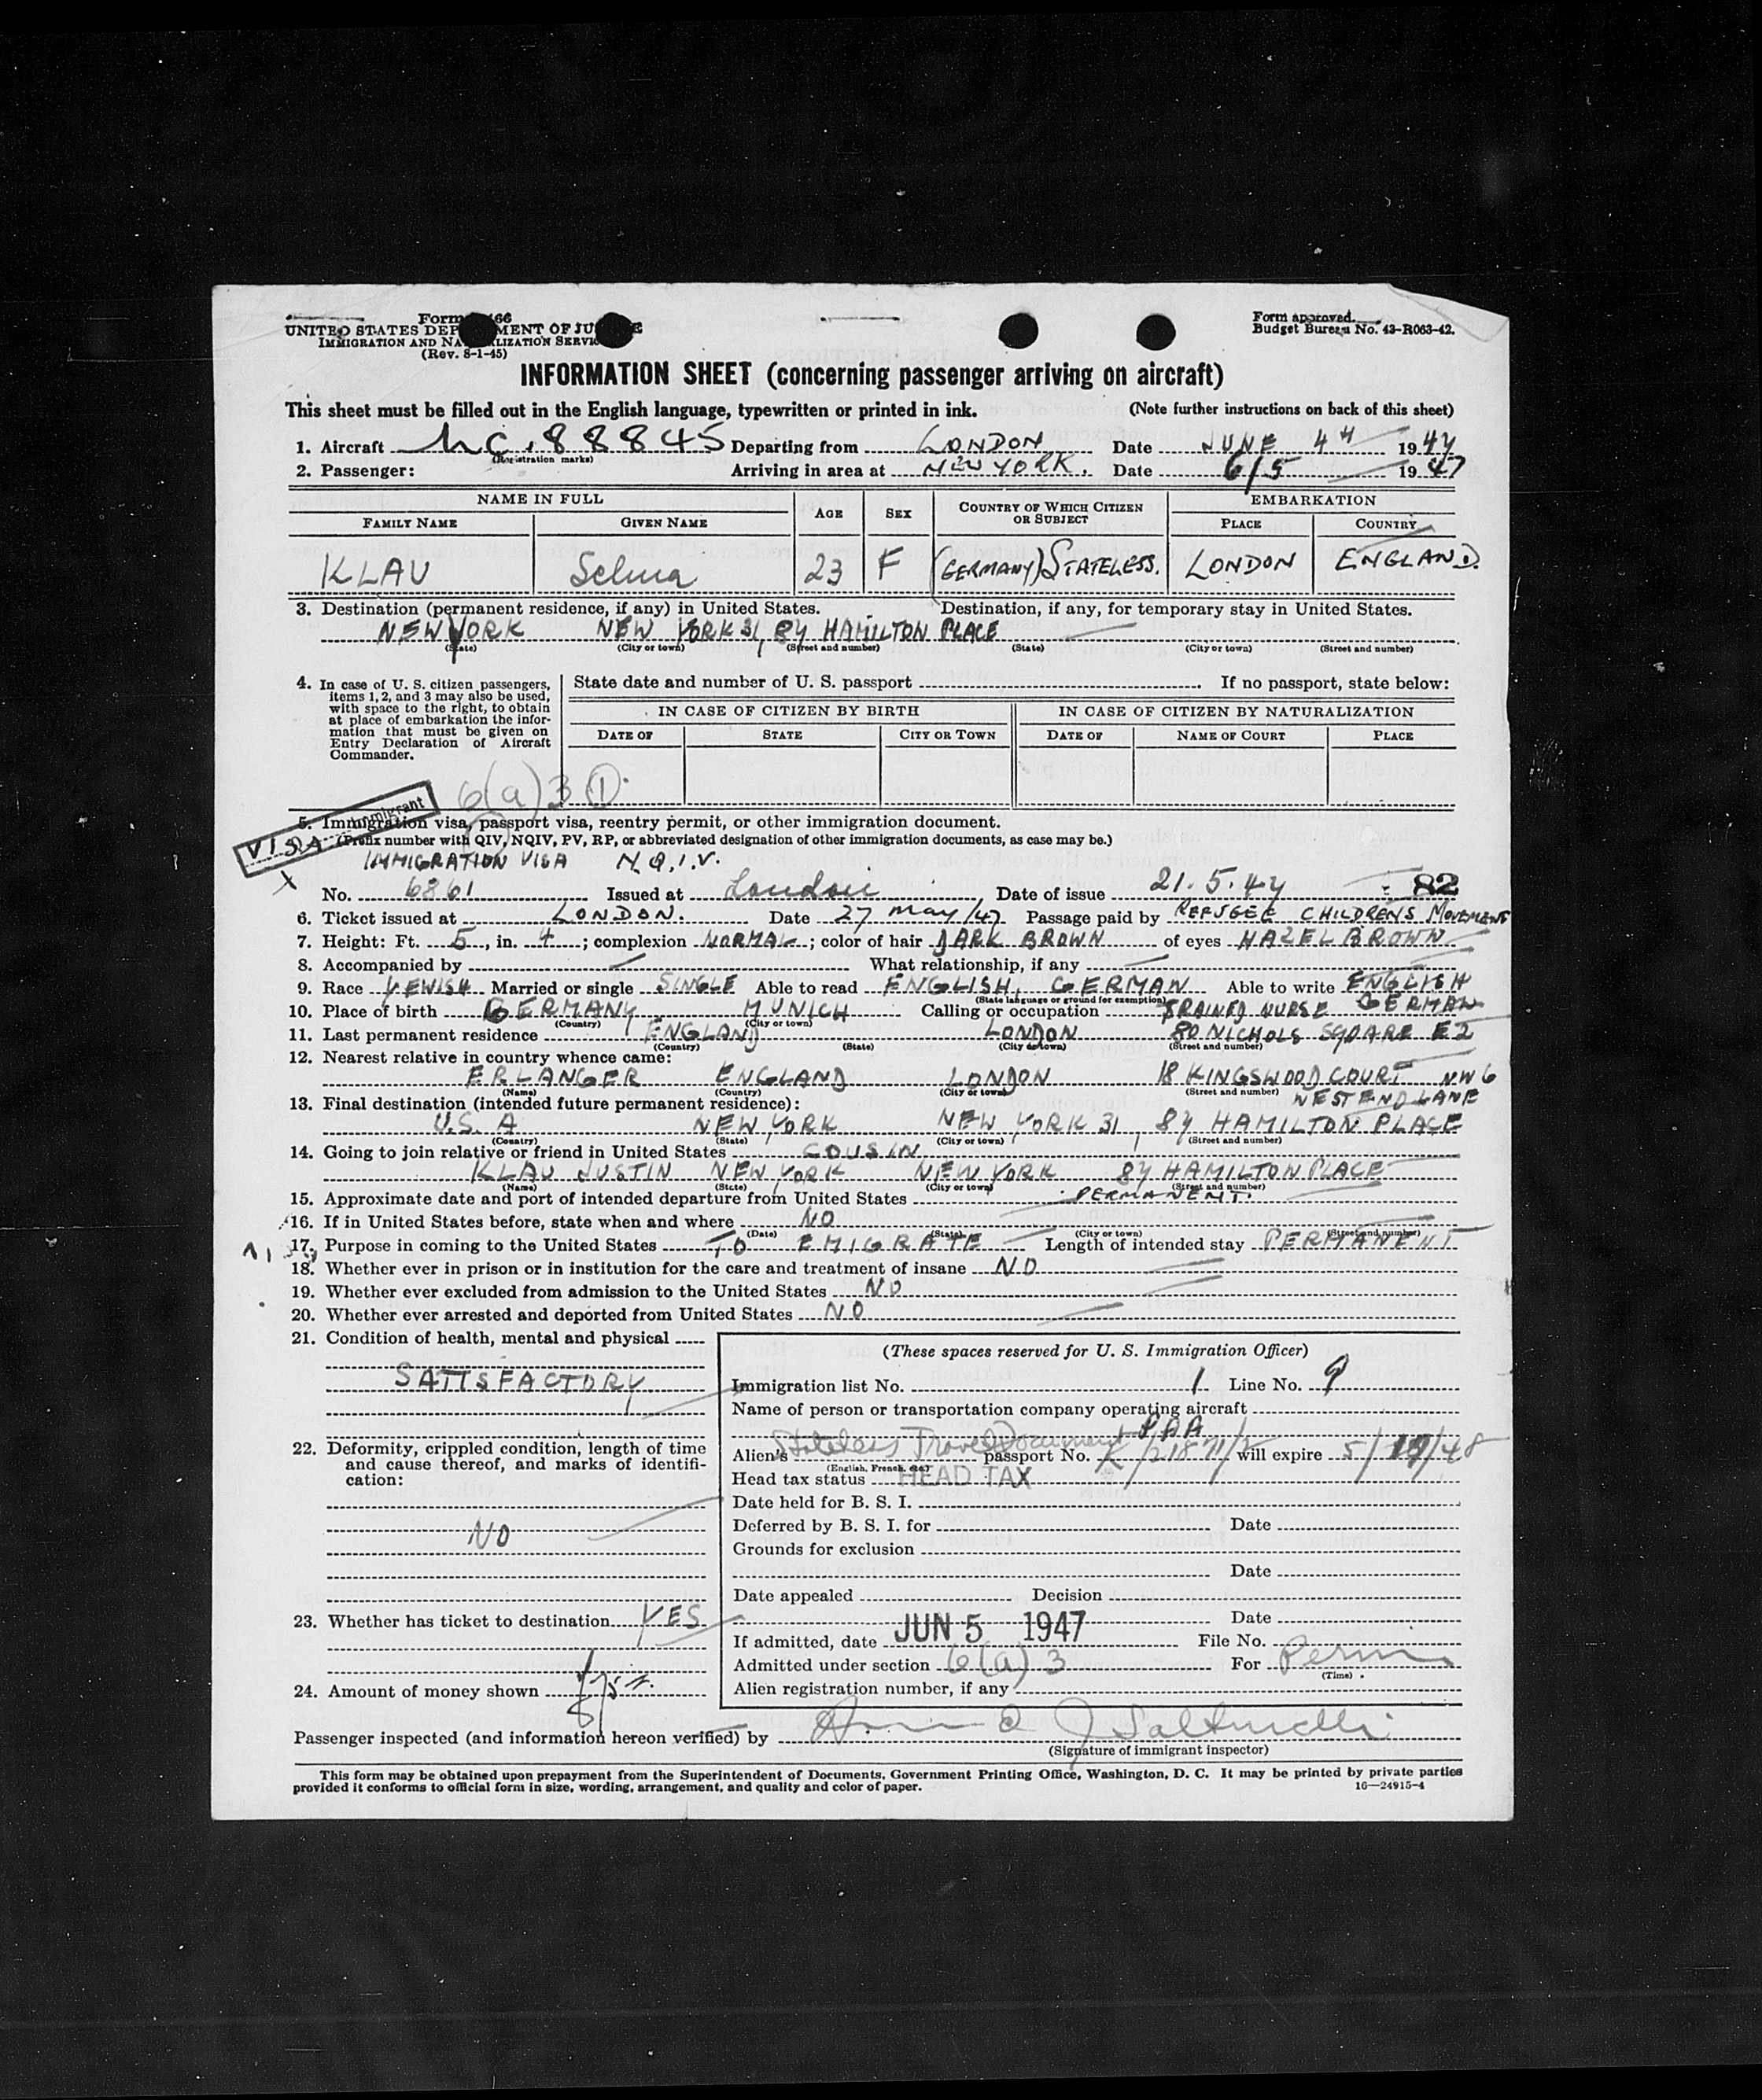 Form 466
UNITED STATES DEPARTMENT OF JUSTICE
IMMIGRATION AND NATURALIZATION SERVICE
(Rev. 8-1-45)
Form approved.
Budget Bureau No. 43-R063-42.
INFORMATION SHEET (concerning passenger arriving on aircraft)
This sheet must be filled out in the English language, typewritten or printed in ink. (Note further instructions on back of this sheet)
1. Aircraft NC. 88845 Departing from LONDON Date JUNE 4th 1947
(Registration marks)
2. Passenger: Arriving in area at NEW YORK. Date 6/5 1947
NAME IN FULL AGE SEX COUNTRY OF WHICH CITIZEN OR SUBJECT EMBARKATION
FAMILY NAME GIVEN NAME PLACE COUNTRY
KLAU Selma 23 F (GERMANY) STATELESS. LONDON ENGLAND.
3. Destination (permanent residence, if any) in United States. Destination, if any, for temporary stay in United States.
NEW YORK NEW YORK 31, 87 HAMILTON PLACE
(State) (City or town) (Street and number) (State) (City or town) (Street and number)
4. In case of U. S. citizen passengers, items 1, 2, and 3 may also be used, with space to the right, to obtain at place of embarkation the information that must be given on Entry Declaration of Aircraft Commander.
State date and number of U. S. passport If no passport, state below:
IN CASE OF CITIZEN BY BIRTH IN CASE OF CITIZEN BY NATURALIZATION
DATE OF STATE CITY OR TOWN DATE OF NAME OF COURT PLACE
6(a)3 1
Immigrant
VISA
5. Immigration visa, passport visa, reentry permit, or other immigration document.
(Prefix number with QIV, NQIV, PV, RP, or abbreviated designation of other immigration documents, as case may be.)
IMMIGRATION VISA N.Q.I.V.
No. 6861 Issued at London Date of issue 21.5.47 82
6. Ticket issued at LONDON. Date 27 May/47 Passage paid by REFUGEE CHILDRENS MOVEMENT
7. Height: Ft. 5, in. 4; complexion NORMAL; color of hair DARK BROWN of eyes HAZEL BROWN
8. Accompanied by What relationship, if any
9. Race JEWISH Married or single SINGLE Able to read ENGLISH, GERMAN Able to write ENGLISH GERMAN
(State language or ground for exemption)
10. Place of birth GERMANY MUNICH Calling or occupation TRAINED NURSE
(Country) (City or town)
11. Last permanent residence ENGLAND LONDON 80 NICHOLS SQUARE E2
(Country) (State) (City or town) (Street and number)
12. Nearest relative in country whence came:
ERLANGER ENGLAND LONDON 18 KINGSWOOD COURT NW6
(Name) (Country) (City or town) (Street and number) WEST END LANE
13. Final destination (intended future permanent residence):
U.S.A NEW YORK NEW YORK 31, 87 HAMILTON PLACE
(Country) (State) (City or town) (Street and number)
14. Going to join relative or friend in United States COUSIN
KLAU JUSTIN NEW YORK NEW YORK 87 HAMILTON PLACE
(Name) (State) (City or town) (Street and number)
15. Approximate date and port of intended departure from United States PERMANENT.
16. If in United States before, state when and where NO
(Date) (State) (City or town) (Street and number)
17. Purpose in coming to the United States TO EMIGRATE Length of intended stay PERMANENT
18. Whether ever in prison or in institution for the care and treatment of insane NO
19. Whether ever excluded from admission to the United States NO
20. Whether ever arrested and deported from United States NO
21. Condition of health, mental and physical
SATISFACTORY
22. Deformity, crippled condition, length of time and cause thereof, and marks of identification:
NO
23. Whether has ticket to destination YES
24. Amount of money shown
(These spaces reserved for U. S. Immigration Officer)
Immigration list No. 1 Line No. 9
Name of person or transportation company operating aircraft
PAA
Alien's Stateless Travel Document passport No. will expire 5/19/48
(English, French, etc.)
Head tax status HEAD TAX
Date held for B. S. I.
Deferred by B. S. I. for Date
Grounds for exclusion
Date
Date appealed Decision
Date
If admitted, date JUN 5 1947 File No.
Admitted under section 6(a)3 For Perm
(Time)
Alien registration number, if any
Passenger inspected (and information hereon verified) by
(Signature of immigrant inspector)
This form may be obtained upon prepayment from the Superintendent of Documents, Government Printing Office, Washington, D. C. It may be printed by private parties
provided it conforms to official form in size, wording, arrangement, and quality and color of paper. 16—24915-4